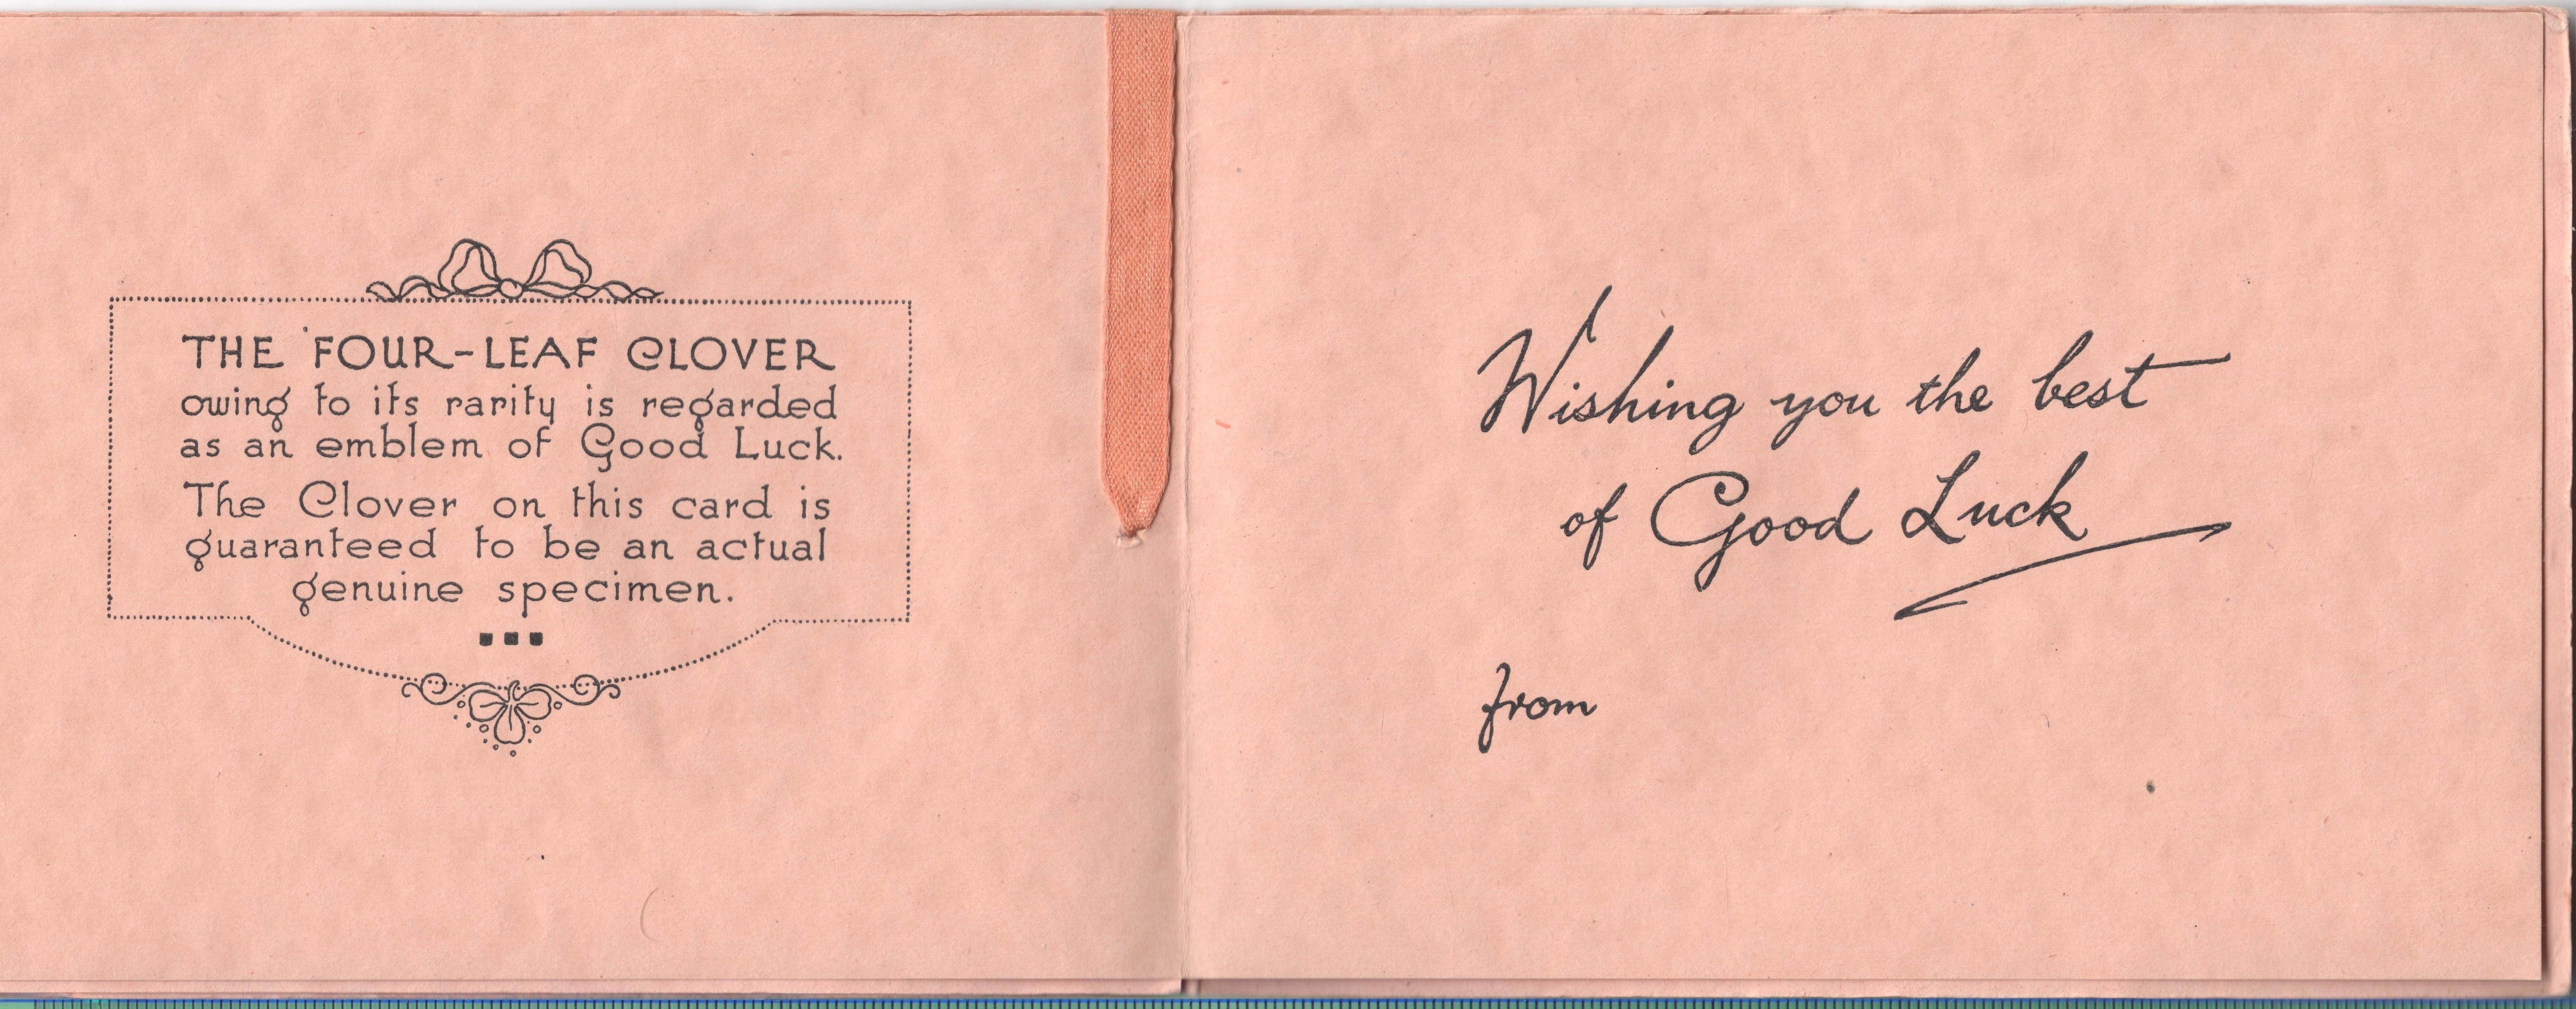 THE FOUR-LEAF CLOVER
owing to its rarity is regarded
as an emblem of Good Luck.
The Clover on this card is
guaranteed to be an actual
genuine specimen.
Wishing you the best
of Good Luck
from